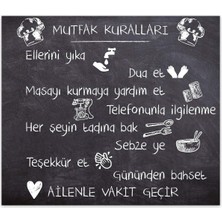 MUTFAK KURALLARI
Ellerini yıka
Dua et
Masayı kurmaya yardım et
Telefonunla ilgilenme
Her şeyin tadına bak
Sebze ye
Teşekkür et
Gününden bahset
AİLENLE VAKİT GEÇİR